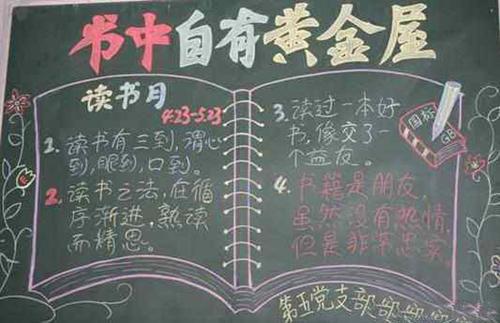 书中自有黄金屋
读书月
4.23-5.23
1. 读书有三到,谓心
到,眼到,口到。
2. 读书之法,在循
序渐进,熟读
而精思。
3. 读过一本好
书,像交了一
个益友。
4. 书籍是朋友,
虽然没有热情,
但是非常忠实
国标
GB
第五党支部